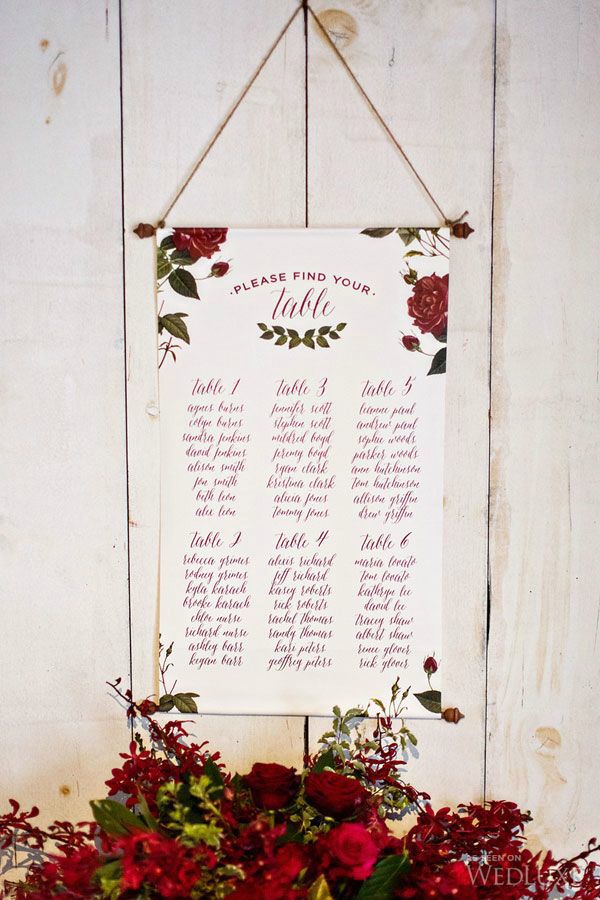 ·PLEASE FIND YOUR·
table
table 1
agnes burns
colyn burns
sandra jenkins
david jenkins
alison smith
jon smith
beth leon
alex leon
table 3
jennifer scott
stephen scott
mildred boyd
jeremy boyd
ryan clark
kristina clark
alicia jones
tommy jones
table 5
leanne paul
andrew paul
sophie woods
parker woods
ann hutchinson
tom hutchinson
allison griffin
drew griffin
table 2
rebecca grimes
rodney grimes
kyla karach
brooke karach
chloe nurse
richard nurse
ashley barr
keyan barr
table 4
alexis richard
jeff richard
kasey roberts
rick roberts
rachel thomas
randy thomas
kari peters
geoffrey peters
table 6
maria lovato
tom lovato
kathryn lee
david lee
tracey shaw
albert shaw
renee glover
rick glover
AS SEEN ON
WEDLUXE